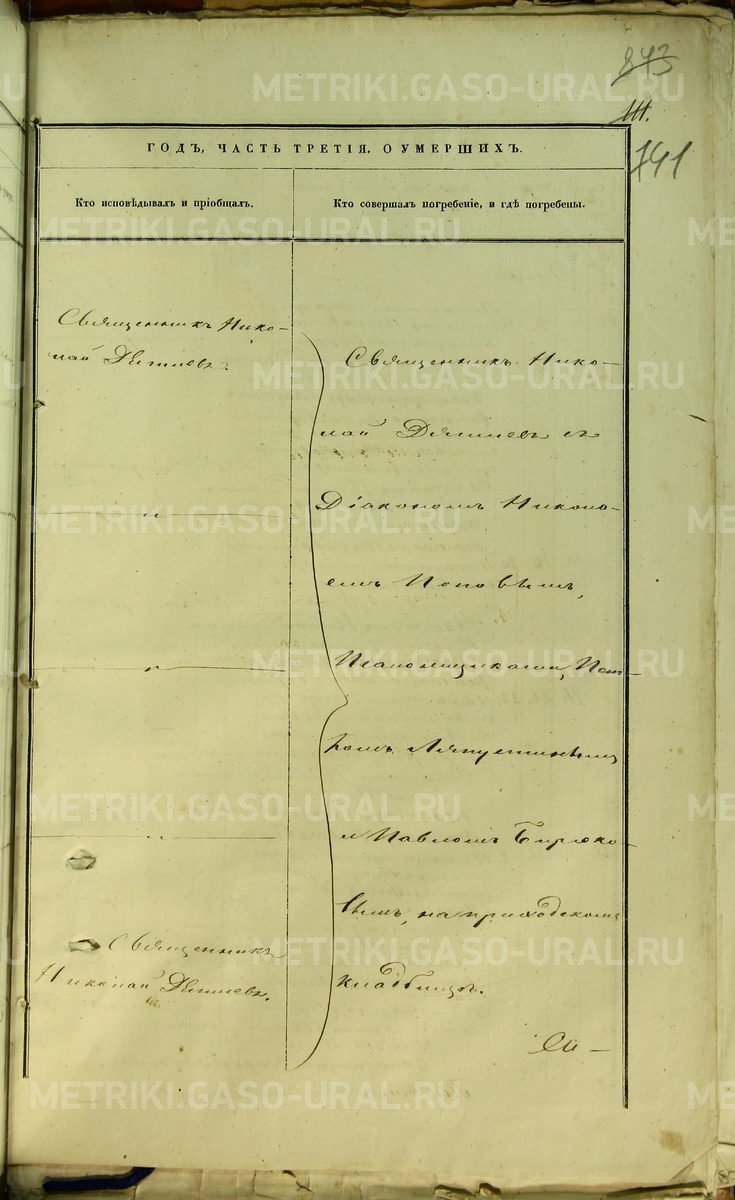 843
111.
741
ГОДЪ, ЧАСТЬ ТРЕТІЯ, О УМЕРШИХЪ.
Кто исповѣдывалъ и пріобщалъ.
Кто совершалъ погребеніе, и гдѣ погребены.
Священникъ Нико-
лай
Священникъ Нико-
лай
Діакономъ Никоно-
емъ Поповымъ,
Псаломщиками, Пет-
ромъ Ляпустинымъ
и Павломъ Бирюко-
вымъ, на приходскомъ
кладбищѣ.
Священникъ
Николай
METRIKI.GASO-URAL.RU